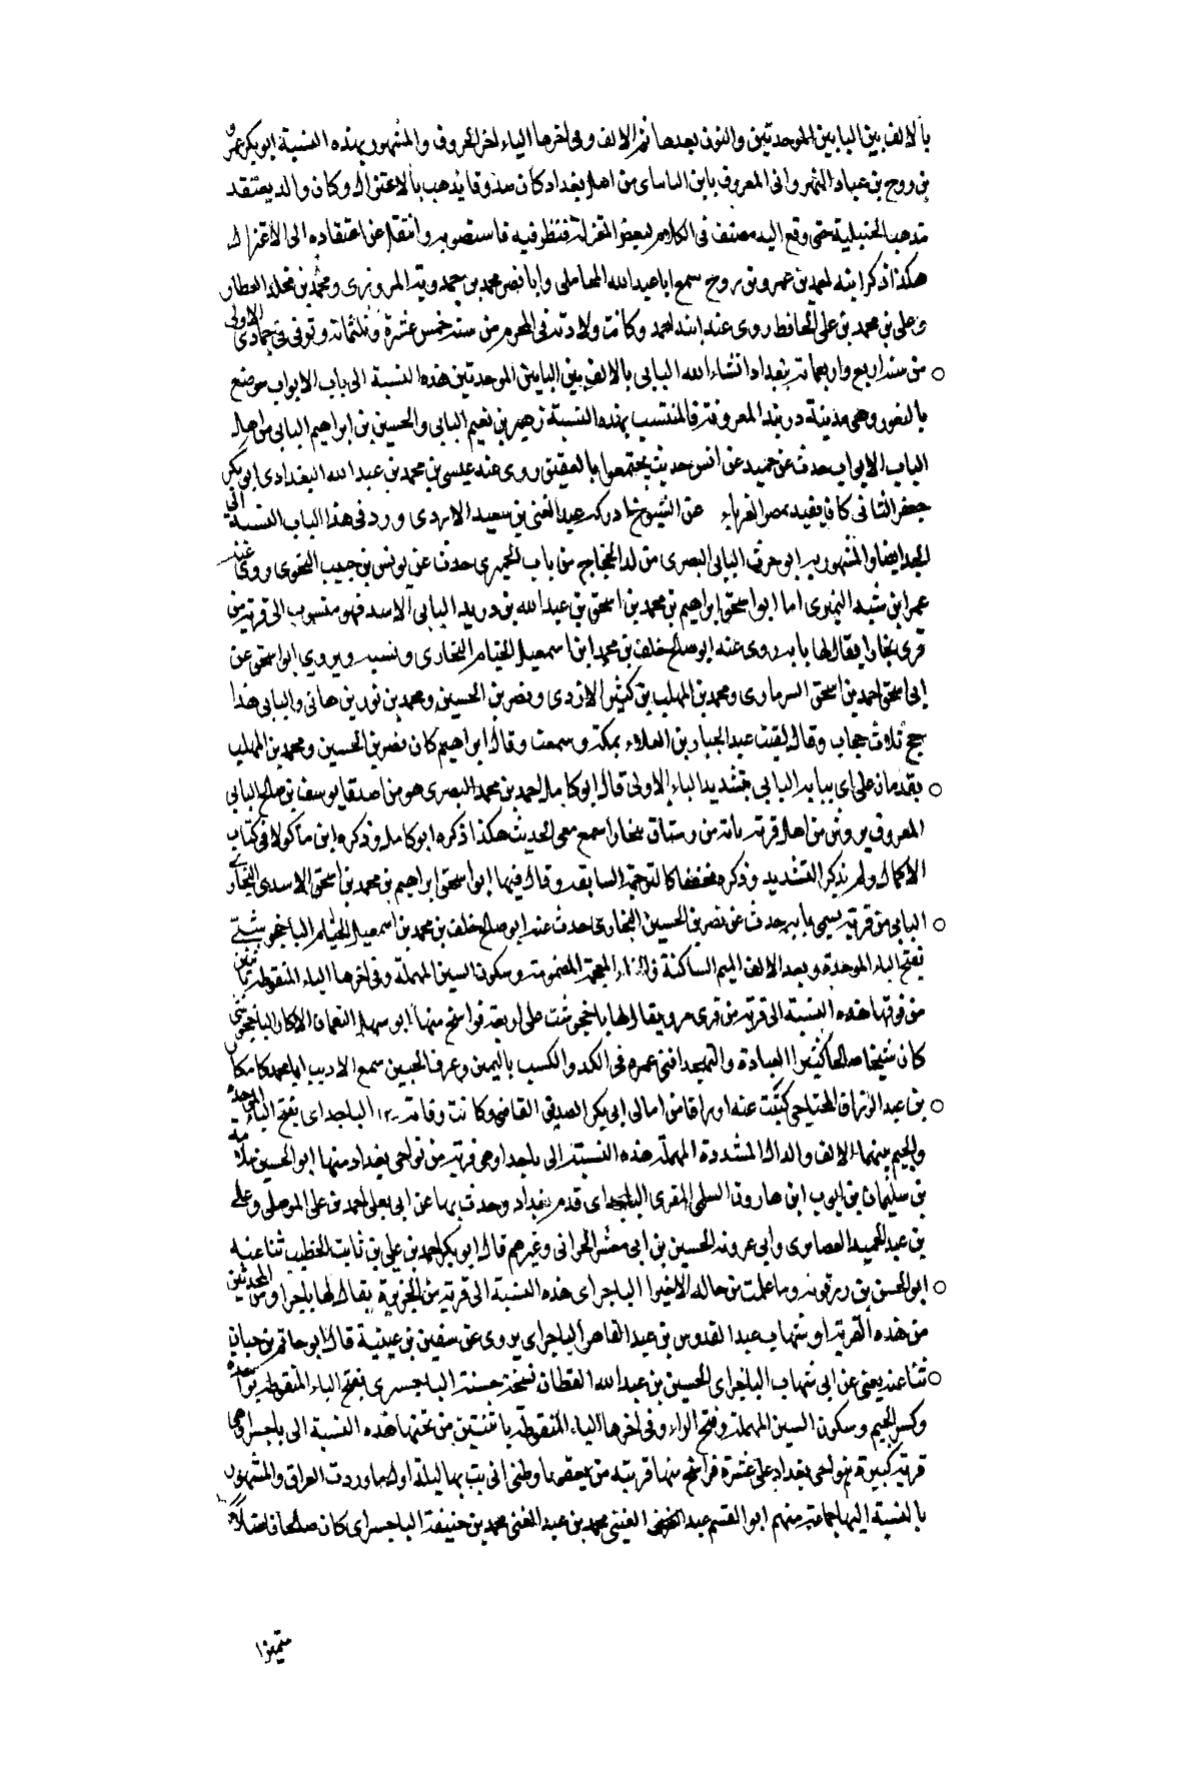 بالالف بين البابين الموحدتين والنون بعدها ثم الالف وفى اخرها الياء اخر الحروف والمشهور بهذه النسبة ابو بكر عمرو
بن روح بن عباد النهروانى المعروف بابن البابناى من اهل بغداد كان صدوقا يذهب بالاعتزال وكان والده يعتقد
مذهب الحنبلية حتى وقع اليه مصنف فى الكلام لبعض المعتزلة فنظر فيه فاستصوبه وانتقل عن اعتقاده الى الاعتزال
هكذا ذكر ابنه احمد بن عمرو بن روح سمع ابا عبد الله المحاملى وابا نصر محمد بن حمدويه المروزى ومحمد بن مخلد العطار
وعلى بن محمد بن على الحافظ روى عنه ابنه احمد وكانت ولادته فى المحرم من سنة خمس عشرة وثلثمائة وتوفى فى جمادى الاولى
من سنة اربع واربعمائة ببغداد انشاء الله البابى بالالف بين البابين الموحدتين هذه النسبة الى باب الابواب موضع
بالثغور وهى مدينة دربند المعروفة فالمنتسب بهذه النسبة زهير بن نعيم البابى والحسين بن ابراهيم البابى من اهل
الباب الابواب حدث عن حميد عن انس حديث تختموا بالعقيق روى عنه عيسى بن محمد بن عبد الله البغدادى ابى بكر
جعفر الثانى كان يفيد بمصر الغرباء عن الشيوخ ادركه عبد الغنى بن سعيد الازدى وورد فى هذا الباب النسبة الى
الجد ايضا والمشهور به ابو حرب البابى البصرى من لد الحجاج من باب الحميرى حدث عن يونس بن حبيب النحوى وروى عنه
عمر ابن شبه النميرى اما ابو اسحق ابراهيم بن محمد بن اسحق بن عبد الله بن دريد البابى الاسد فهو منسوب الى قرية من
قرى بخارا يقال لها بابه روى عنه ابو صالح خلف بن محمد ابن اسمعيل الخيام البخارى ونسبه ويروى ابو اسحق عن
ابى اسحق احمد بن اسحق السرمارى ومحمد بن المهلب بن كثير الازدى ونصر بن الحسين ومحمد بن نور بن هانى والبابى هذا
حج ثلاث حجات وقال لقيت عبد الجبار بن العلاء بمكة وسمعت وقال ابراهيم كان نصر بن الحسين ومحمد بن المهلب
يقدمان على اى ببابه البابى بتشديد الباء الاولى قال ابو كامل احمد بن محمد البصرى هو من اصدقا يوسف بن صالح البابى
المعروف من اهل قرية بابه من رستاق بخارا سمع معى الحديث هكذا ذكره ابو كامل وذكره ابن ماكولا فى كتاب
الاكمال ولم يذكر التشديد وذكره مخففا كالترجمة السابقة وقال فيها ابو اسحق ابراهيم بن محمد بن اسحق الاسدى البخارى
البابى من قرية يسمى بابه حدث عن نصر بن الحسين البخارى حدث عنه ابو صالح خلف بن محمد بن اسمعيل الخيام الباخمرستى
بفتح الباء الموحدة وبعد الالف الميم الساكنة المعجمة المضمومة وسكون السين المهملة وفى اخرها الياء المنقوطة باثنتين
من فوقها هذه النسبة الى قرية من قرى مرو يقال لها على اربعة فراسخ منها ابو سهل النعمان الاكار
كان شيخا صالحا كثير العبادة والتهجد افنى عمره فى الكد والكسب باليمين وعرف الجبين سمع الاديب ابا محمد كامكار
بن عبد الرزاق المحتاجى كتبت عنه اوراقا من امالى ابى بكر الصدفى القاضى وكانت وفاته ١٢٠ الباجداى بفتح الباء الموحدة
والجيم بينهما الالف والدال المشددة المهملة هذه النسبة الى باجدا وهى قرية من نواحى بغداد منها ابو الحسين سلامة
بن سليمان بن ايوب ابن هارون السلمى المقرى الباجداى قدم بغداد وحدث بها عن ابى يعلى احمد بن على الموصلى وعلى
بن عبد الحميد الغضايرى وابى عروبة الحسين بن ابى معشر الحرانى وغيرهم قال ابو بكر احمد بن على بن ثابت الخطيب ثنا عنه
ابو الحسن بن رزقويه وما علمت من حاله الاخيرا الباجراى هذه النسبة الى قرية من الجزيرة يقال لها باجرا ومن المحدثين
من هذه القرية ابو شهاب عبد القدوس بن عبد القاهر الباجراى يروى عن سفين بن عيينة قال ابو حاتم بن حبان
ثنا عنه يعنى عن ابى شهاب الباجراى الحسين بن عبد الله القطان نسخة حسنة الباجسرى بفتح الباء المنقوطة بواحدة
وكسر الجيم وسكون السين المهملة وفتح الراء وفى اخرها الياء المنقوطة باثنتين من تحتها هذه النسبة الى باجسرا وهى
قرية كبيرة بنواحى بغداد على عشرة فراسخ منها قريبة من بعقوبا وظنى انى بت بها ليلة اول ما وردت العراق والمشهور
بالنسبة اليها جماعة منهم ابو القسم عبد الغنى محمد بن عبد الغنى محمد بن حنيفة الباجسراى كان صالحا فاضلا
متميزا